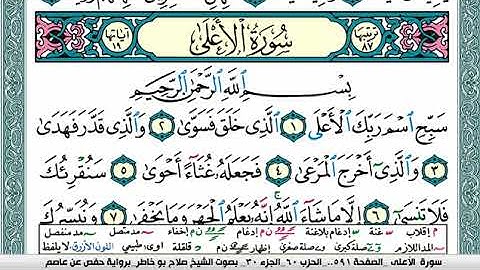 ترتيبها ٨٧ سُورَةُ الْأَعْلَى آياتها ١٩
بِسْمِ اللَّهِ الرَّحْمَٰنِ الرَّحِيمِ
سَبِّحِ اسْمَ رَبِّكَ الْأَعْلَى ١ الَّذِي خَلَقَ فَسَوَّىٰ ٢ وَالَّذِي قَدَّرَ فَهَدَىٰ
٣ وَالَّذِي أَخْرَجَ الْمَرْعَىٰ ٤ فَجَعَلَهُ غُثَاءً أَحْوَىٰ ٥ سَنُقْرِئُكَ
فَلَا تَنسَىٰ ٦ إِلَّا مَا شَاءَ اللَّهُ إِنَّهُ يَعْلَمُ الْجَهْرَ وَمَا يَخْفَىٰ ٧ وَنُيَسِّرُكَ
إقلاب غنة إدغام بلاغنة إدغام إخفاء مد متصل مد منفصل
المد اللازم صلة كبرى صلة صغرى إظهار قلقلة اوى: طبيعي اللون الأزرق: لا يلفظ
سورة الأعلى _الصفحة ٥٩١_ الحزب ٦٠_الجزء ٣٠_ بصوت الشيخ صلاح بو خاطر_برواية حفص عن عاصم